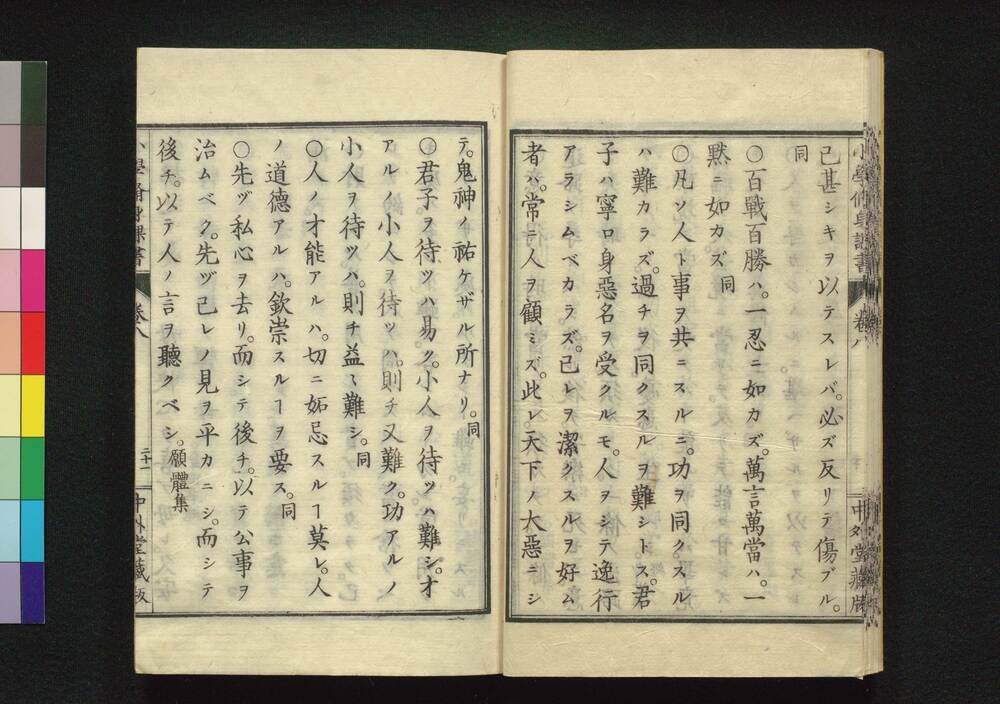 小學修身課書 卷八 中外堂藏版
己甚シキヲ以テスレバ。必ズ反リテ傷ブル。
同
○百戰百勝ハ。一忍ニ如カズ。萬言萬當ハ。一
黙ニ如カズ 同
○凡ソ人ト事ヲ共ニスルニ。功ヲ同クスル
ハ難カラズ。過チヲ同クスルヲ難シトス。君
子ハ寧ロ身惡名ヲ受クルモ。人ヲシテ逸行
アラシムベカラズ。己レヲ潔クスルヲ好ム
者ハ。常ニ人ヲ顧ミズ。此レ。天下ノ大惡ニシ
テ。鬼神ノ祐ケザル所ナリ。同
○君子ヲ待ツハ易ク。小人ヲ待ツハ難シ。オ
アルノ小人ヲ待ツハ。則チ又難ク。功アルノ
小人ヲ待ツハ。則チ益〻難シ。同
○人ノ才能アルハ。切ニ妬忌スルヿ莫レ。人
ノ道德アルハ。欽崇スルヿヲ要ス。同
○先ヅ私心ヲ去リ。而シテ後チ。以テ公事ヲ
治ムベク。先ヅ己レノ見ヲ平カニシ。而シテ
後チ。以テ人ノ言ヲ聽クベシ。願體集
小學修身課書 卷八 二十一 中外堂藏版